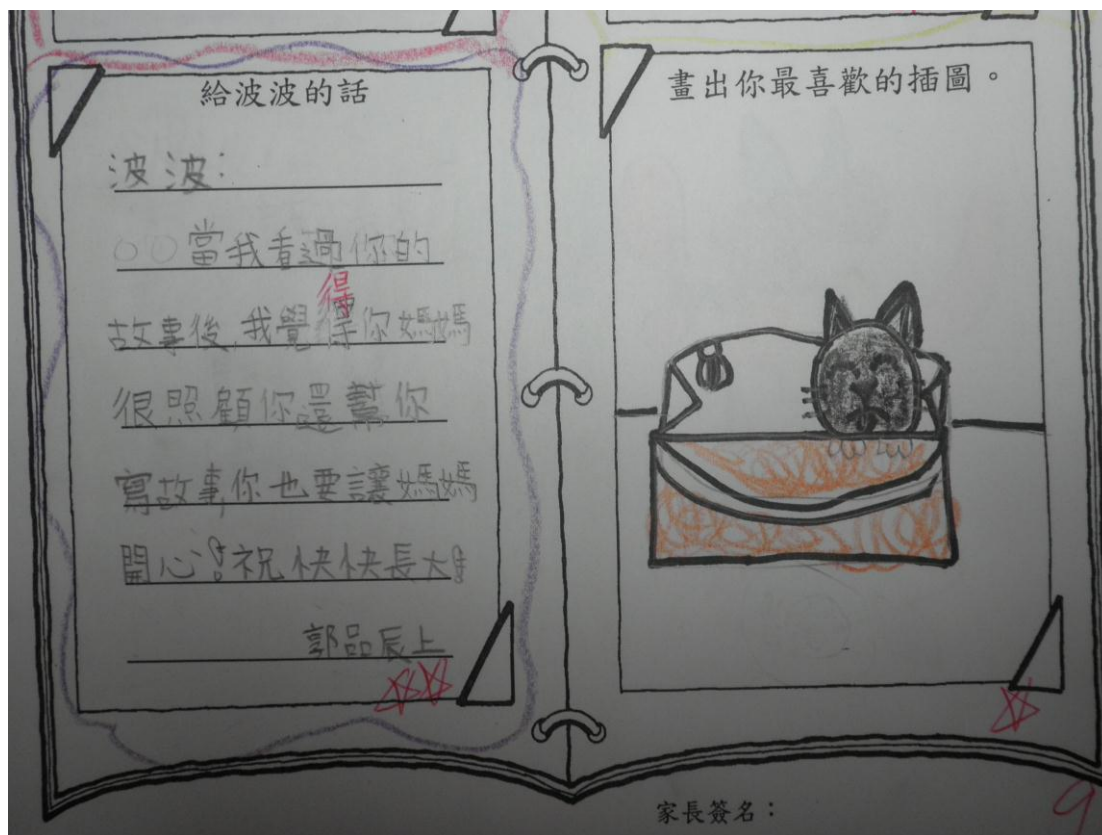 給波波的話
波波：
○○當我看過你的
得
故事後,我覺得你媽媽
很照顧你還幫你
寫故事,你也要讓媽媽
開心!祝快快長大!
郭品辰上
畫出你最喜歡的插圖。
家長簽名：
9